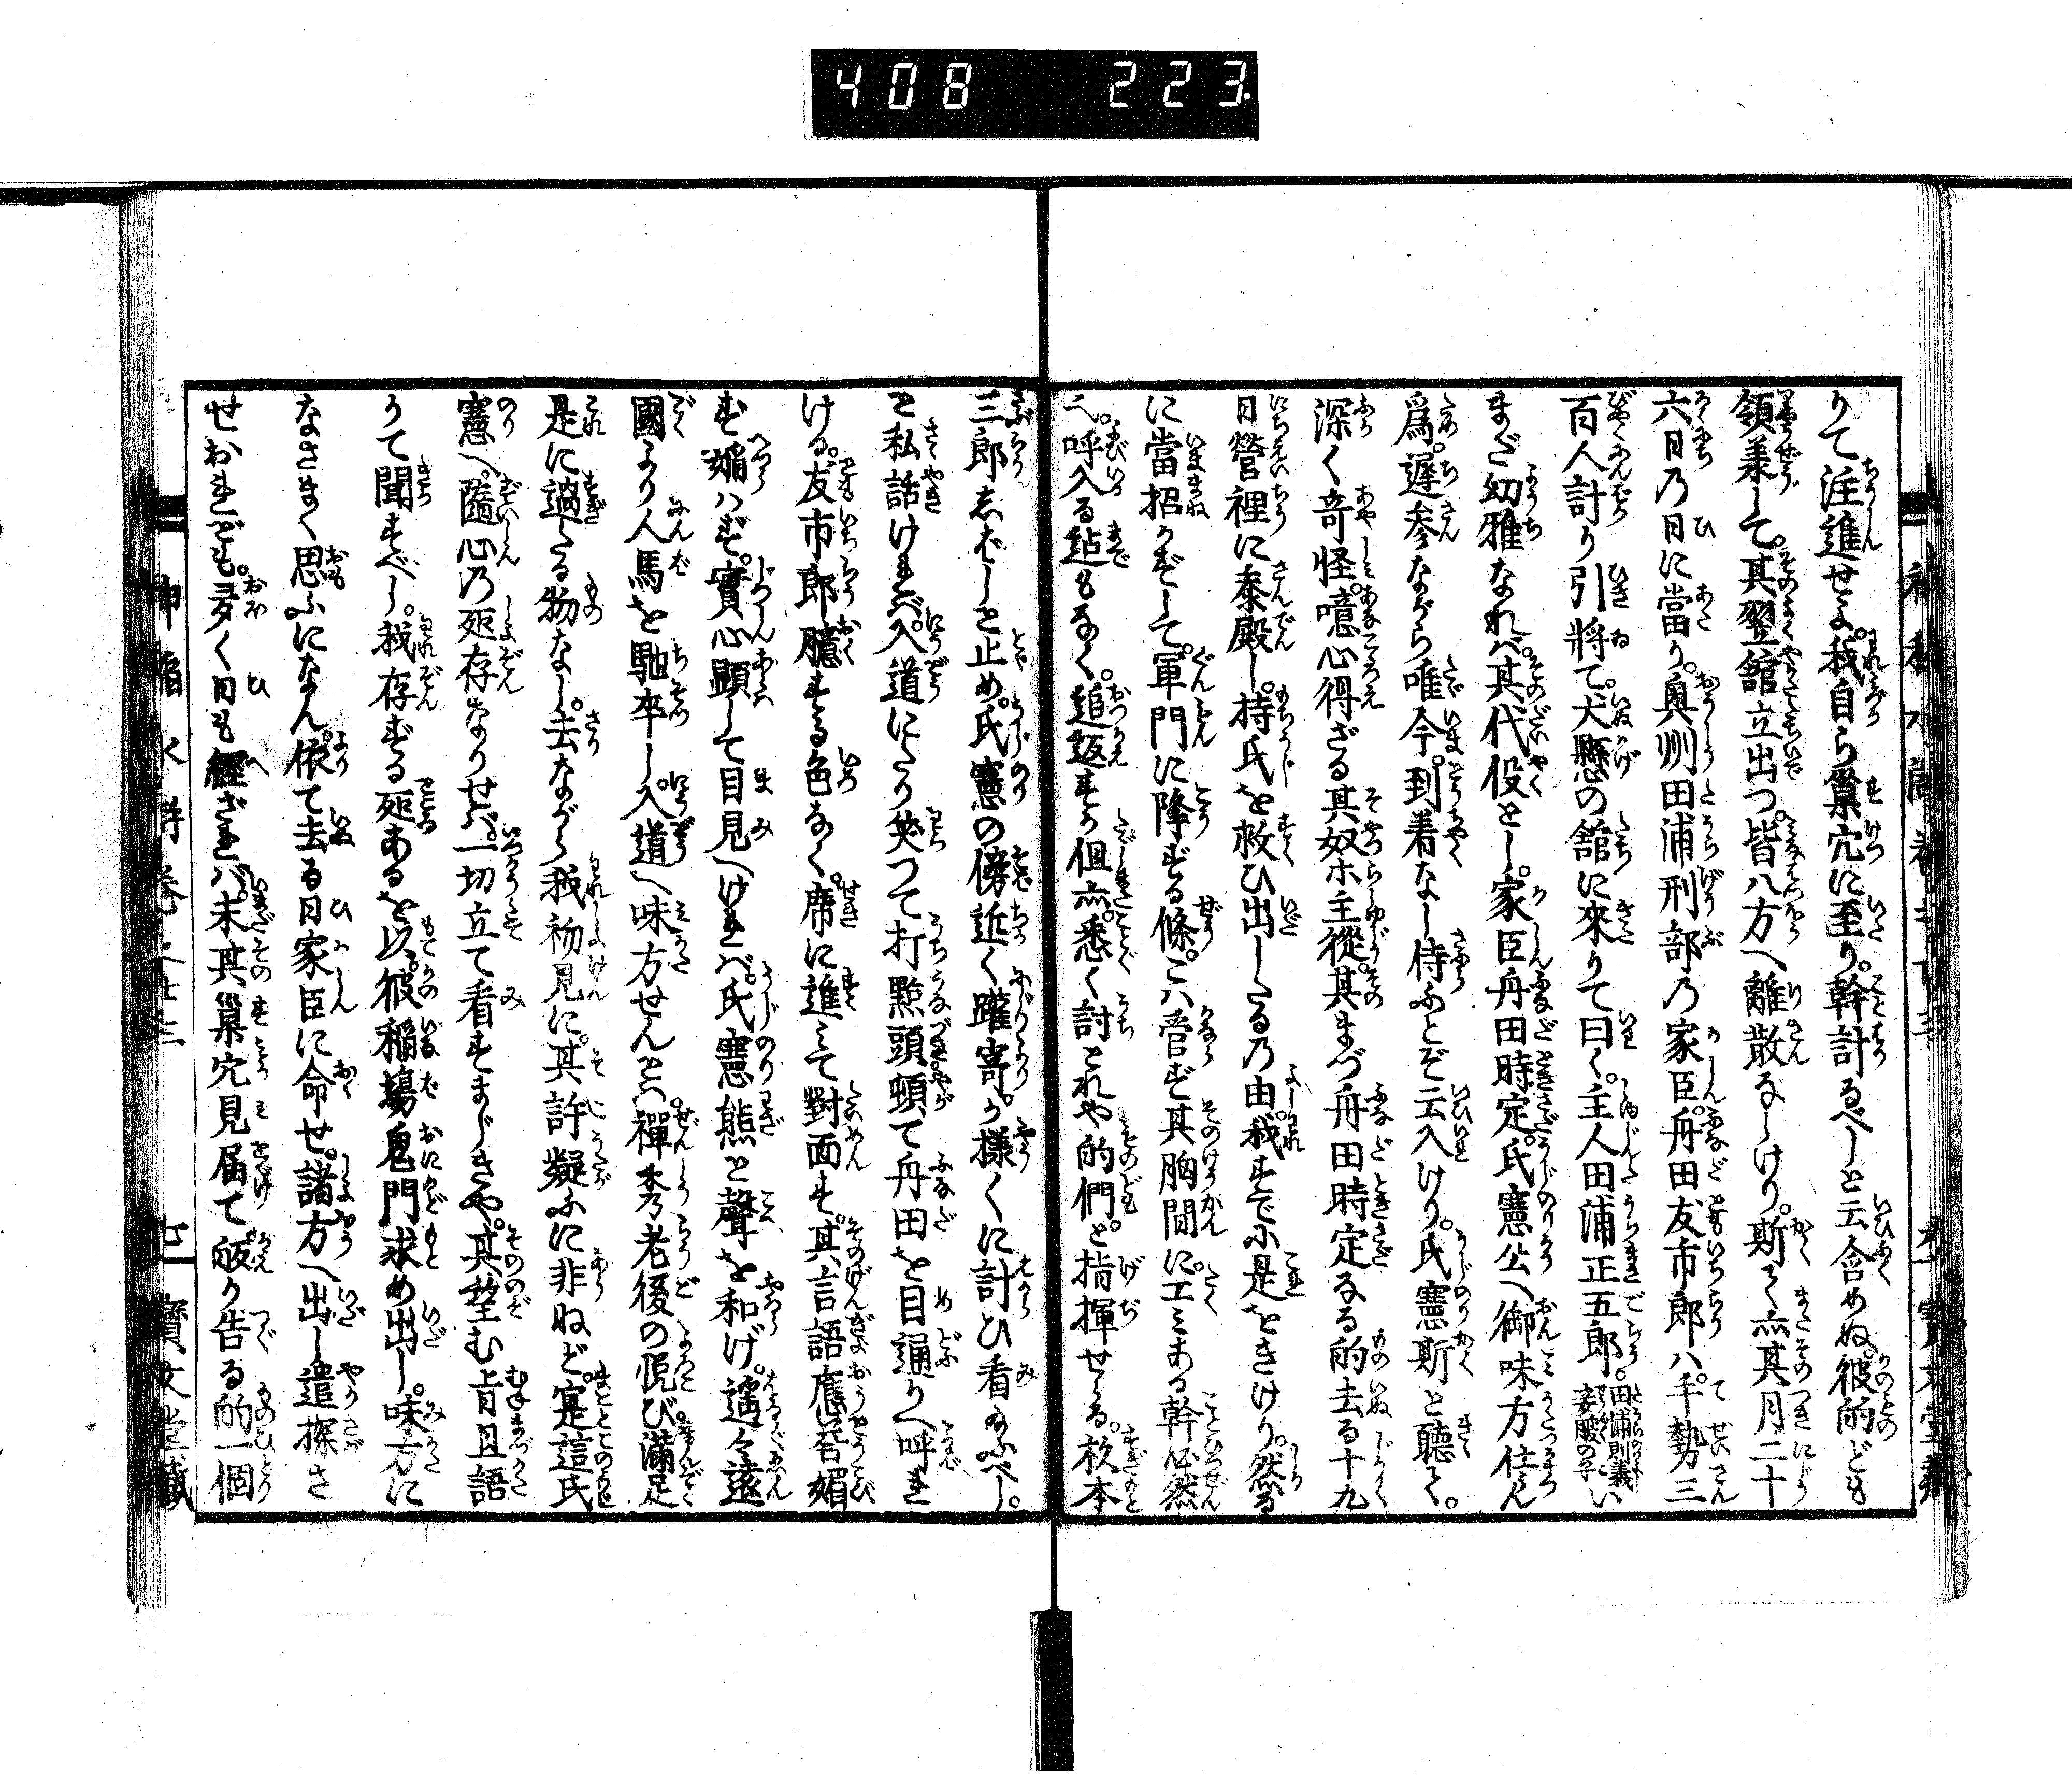 408 223.
りて注進せよ。我自ら巣穴に至り。幹計るべしと云含めぬ。彼的ども
領承して。其翌舘立出つ。皆八方へ離散なしけり。斯て亦其月二十
六日乃日に當り。奥州田浦刑部乃家臣。舟田友市郎ハ。手勢三
百人計り引將て。犬懸の舘に來りて曰く。主人田浦正五郎。田浦則義妾腹の子い
まだ幼雅なれバ。其代役とし。家臣舟田時定。氏憲公へ御味方仕らん
爲。遲参ながら唯今。到着なし侍ふとぞ云入けり。氏憲斯と聽て。
深く奇怪。噫心得ざる其奴ホ主從。其まづ舟田時定なる的去る十九
日營裡に泰殿し。持氏を救ひ出したる乃由。我すでに是をきけり。然る
に當招かずして。軍門に降ずる條。こハ管ず其胸間に。工ミある幹必然
へ。呼入る迠もなく。追返すか但亦。悉く討とれや的們。と指揮せる。杉本
三郎志ばしと止め。氏憲の傍近く躍寄。か様くに計ひ看給ふべし。
と私語けれバ。入道にたり笑つて打點頭頓て舟田を目通りへ呼れ
ける。友市郎臆する色なく。席に進ミて對面す。其言語應答媚
ず媚ハず。實心顯して目見へけれバ。氏憲熊と聲を和げ。遙々遠
國より人馬を馳卒し。入道へ味方せんとハ。禪秀老後の悦び滿足
是に過たる物なし。去ながら我初見に。其許疑ふに非ねど。寔這氏
憲へ。隨心乃所存なりせバ。一切立て看すまじきや。其望む旨且語
りて聞すべし。我存ずる所あるを以。彼稲塲鬼門求め出し。味方に
なさまく思ふになん。依て去る日家臣に命せ。諸方へ出し遣探さ
せおれども。多く日も經ざれバ。未其巣穴見届て皈り告る的一個